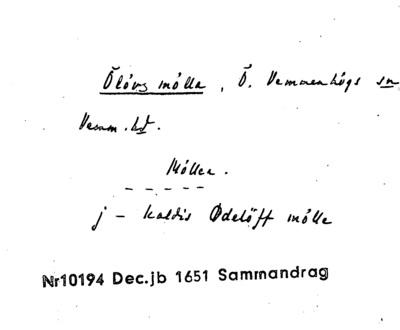 Ölövs mölla, Ö. Vemmenhögs sn
Vemm. hd.
Möllen.
j – kaldis Ødelöff mölle
Nr10194 Dec.jb 1651 Sammandrag